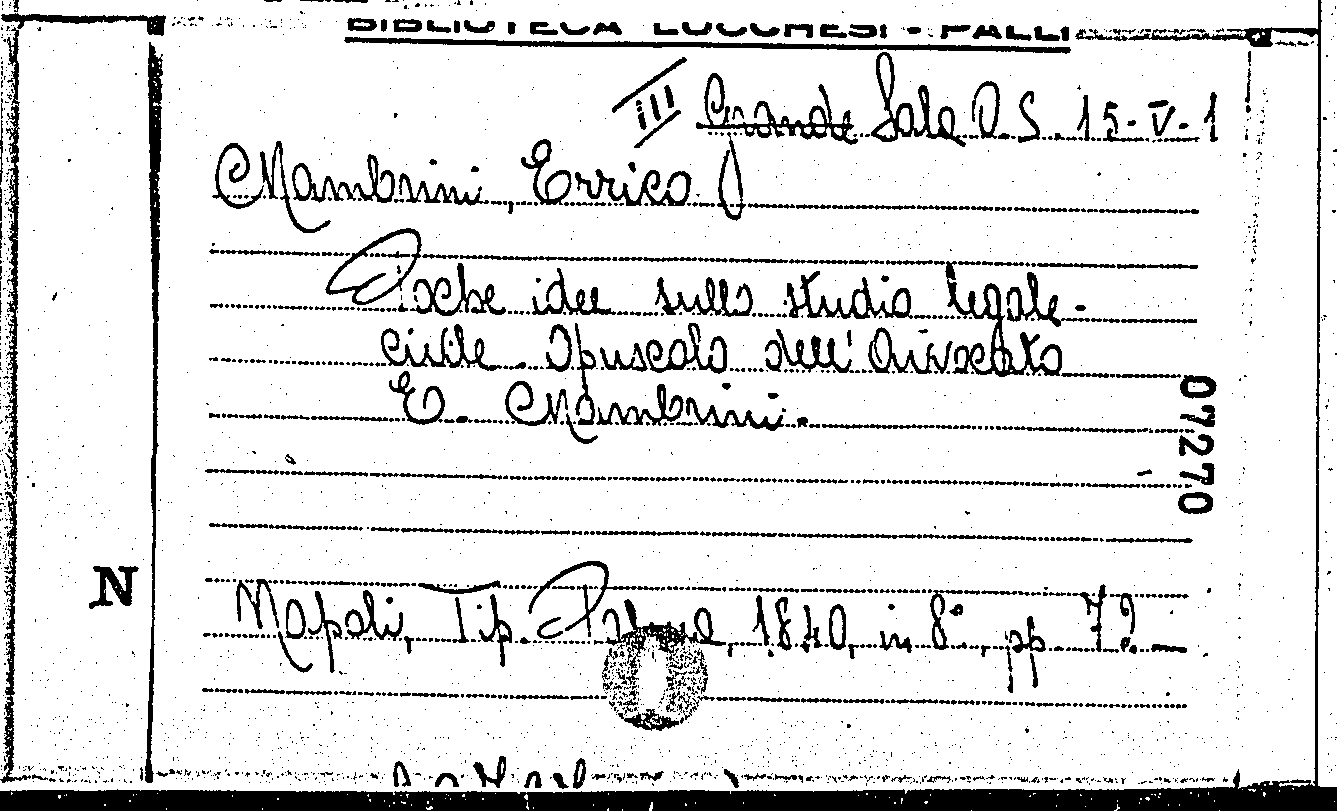 BIBLIOTECA LUCCHESI - PALLI
III Grande Sala O. S. 15-V-1
Mambrini, Errico
Poche idee sullo studio legale-
civile. Opuscolo dell'Avvocato
E. Mambrini.
07270
N
Napoli, Tip. 1840, in 8°, pp. 72.